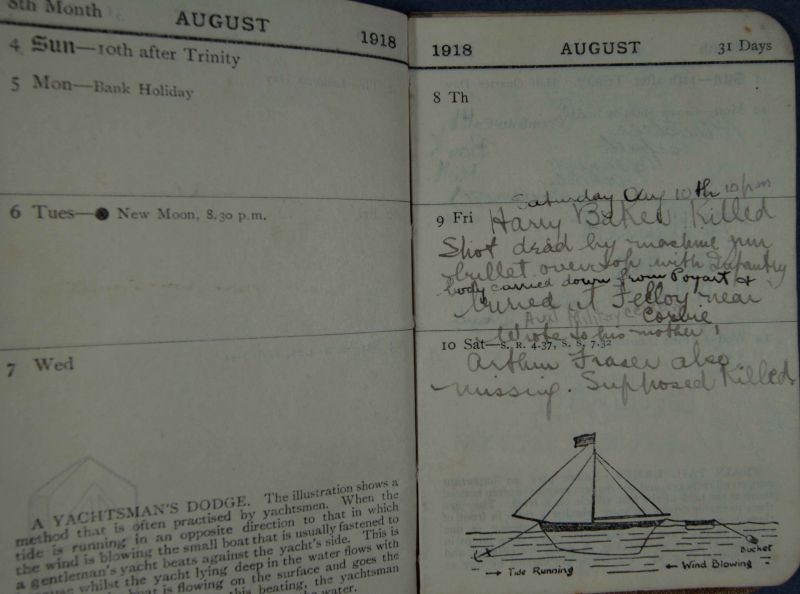 8th Month AUGUST 1918
4 Sun—10th after Trinity
5 Mon—Bank Holiday
6 Tues—● New Moon, 8.30 p.m.
7 Wed
A YACHTSMAN'S DODGE. The illustration shows a
method that is often practised by yachtsmen. When the
tide is running in an opposite direction to that in which
the wind is blowing the small boat that is usually fastened to
a gentleman's yacht beats against the yacht's side. This is
whilst the yacht lying deep in the water flows with
boat is flowing on the surface and goes the
this beating, the yachtsman
water.
1918 AUGUST 31 Days
8 Th
Saturday Aug 10th 10pm
9 Fri Harry Baker Killed
Shot dead by machine gun
bullet over top with Infantry
body carried down from Poyart &
buried at Felloy near
Corbie
Wrote to his mother
10 Sat—S. R. 4.37, S. S. 7.32
Arthur Fraser also
missing. Supposed Killed
Bucket
→ Tide Running ← Wind Blowing